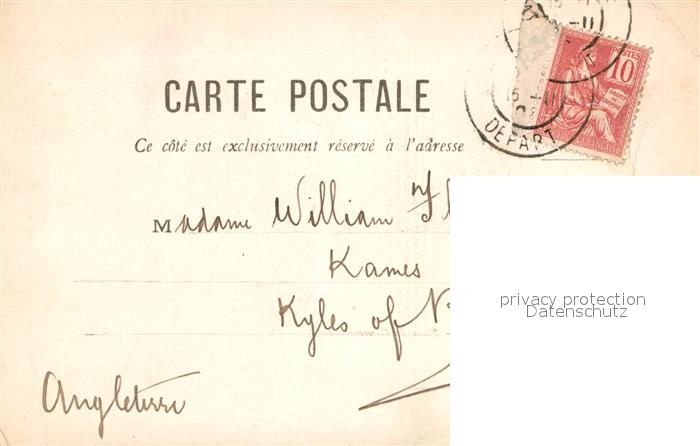 POSTES
10
RÉPUBLIQUE FRANÇAISE
15
DEPART
CARTE POSTALE
Ce côté est exclusivement réservé à l'adresse
Madame William
Kames
Kyles of
Angleterre
privacy protection
Datenschutz